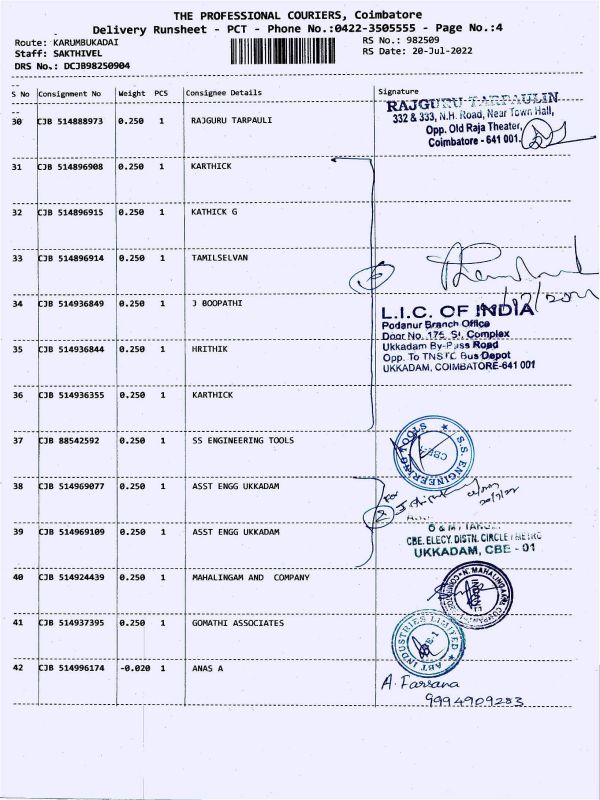 THE PROFESSIONAL COURIERS, Coimbatore
Delivery Runsheet - PCT - Phone No.:0422-3505555 - Page No.:4
Route: KARUMBUKADAI
Staff: SAKTHIVEL
DRS No.: DCJB98250904
RS No.: 982509
RS Date: 20-Jul-2022
S No Consignment No Weight PCS Consignee Details Signature
30 CJB 514888973 0.250 1 RAJGURU TARPAULI
RAJGURU TARPAULIN
332 & 333, N.H. Road, Near Town Hall,
Opp. Old Raja Theater,
Coimbatore - 641 001.
31 CJB 514896908 0.250 1 KARTHICK
32 CJB 514896915 0.250 1 KATHICK G
33 CJB 514896914 0.250 1 TAMILSELVAN
6
34 CJB 514936849 0.250 1 J BOOPATHI
L.I.C. OF INDIA
Podanur Branch Office
Door No. 175, St. Complex
Ukkadam By-Pass Road
Opp. To TNSTC Bus Depot
UKKADAM, COIMBATORE-641 001
35 CJB 514936844 0.250 1 HRITHIK
36 CJB 514936355 0.250 1 KARTHICK
37 CJB 88542592 0.250 1 SS ENGINEERING TOOLS
S.S. ENGINEERING TOOLS
38 CJB 514969077 0.250 1 ASST ENGG UKKADAM
2
20/7/22
39 CJB 514969109 0.250 1 ASST ENGG UKKADAM
CBE. ELECY. DISTN. CIRCLE / METRO
UKKADAM, CBE - 01
40 CJB 514924439 0.250 1 MAHALINGAM AND COMPANY
41 CJB 514937395 0.250 1 GOMATHI ASSOCIATES
ABT INDUSTRIES LIMITED
42 CJB 514996174 -0.020 1 ANAS A
A. Farsana
9994909283